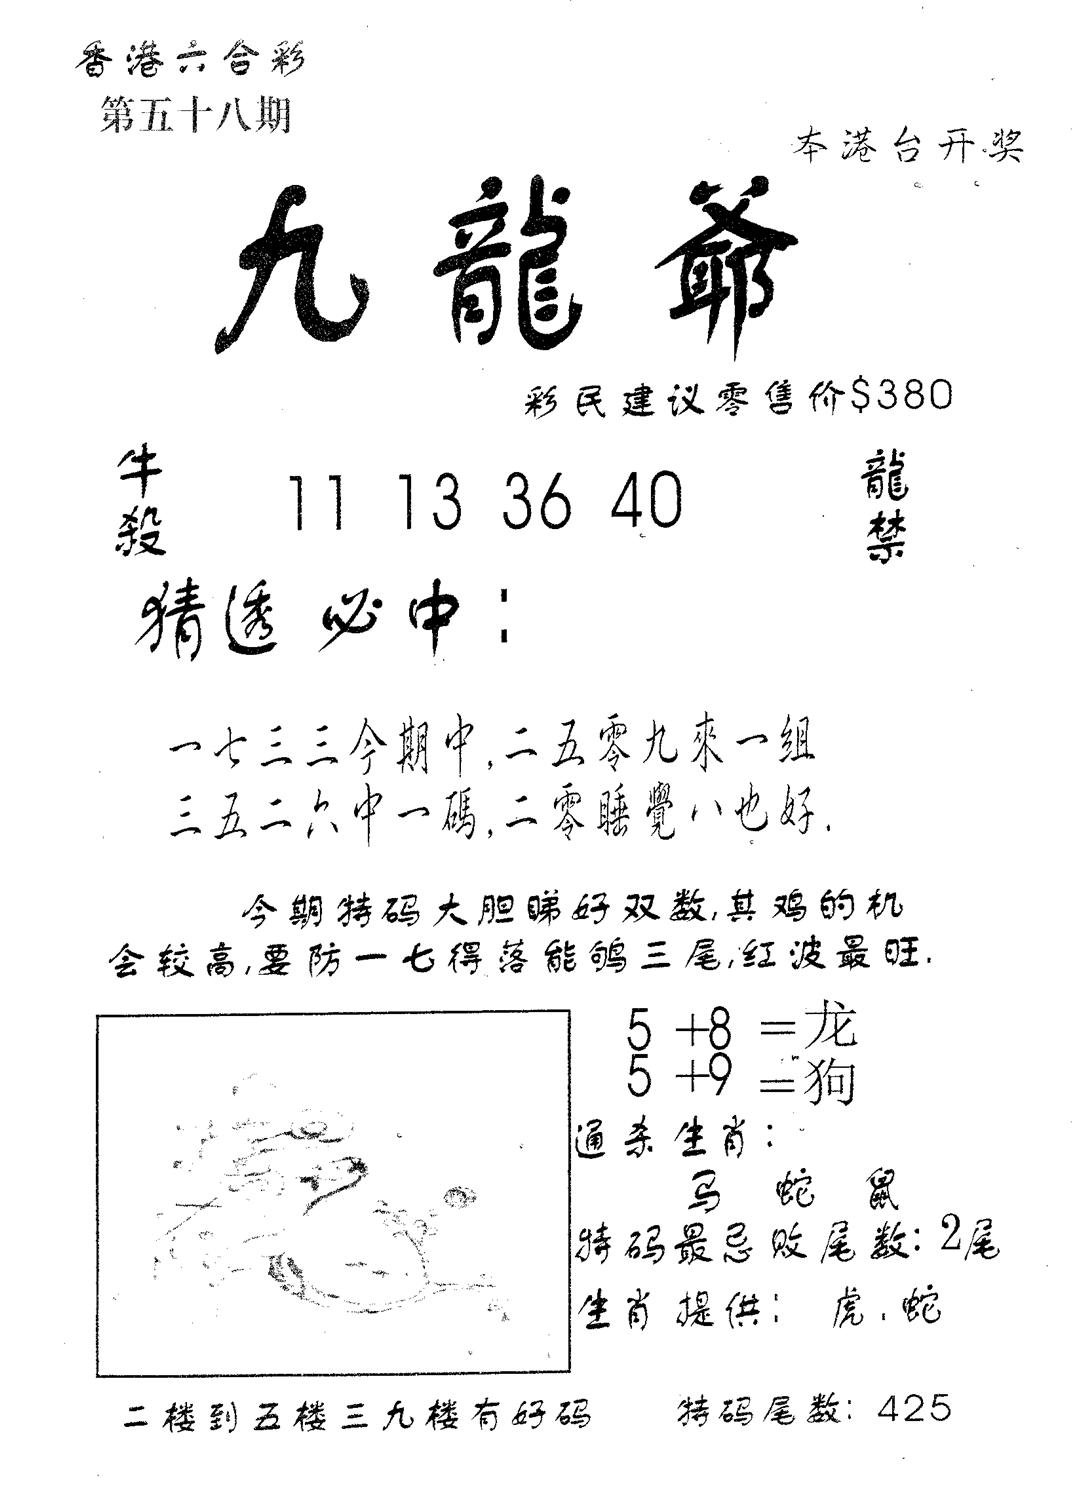 香港六合彩
第五十八期
本港台开奖
九龍爺
彩民建议零售价$380
牛殺
11 13 36 40
龍禁
猜透必中：
一七三三今期中,二五零九來一组
三五二六中一碼,二零睡覺八也好.
今期特码大胆睇好双数,其鸡的机
会较高,要防一七得落能鸲三尾,红波最旺.
5+8=龙
5+9=狗
通杀生肖：
马 蛇 鼠
特码最忌败尾数：2尾
生肖提供：虎.蛇
二楼到五楼三九楼有好码
特码尾数：425